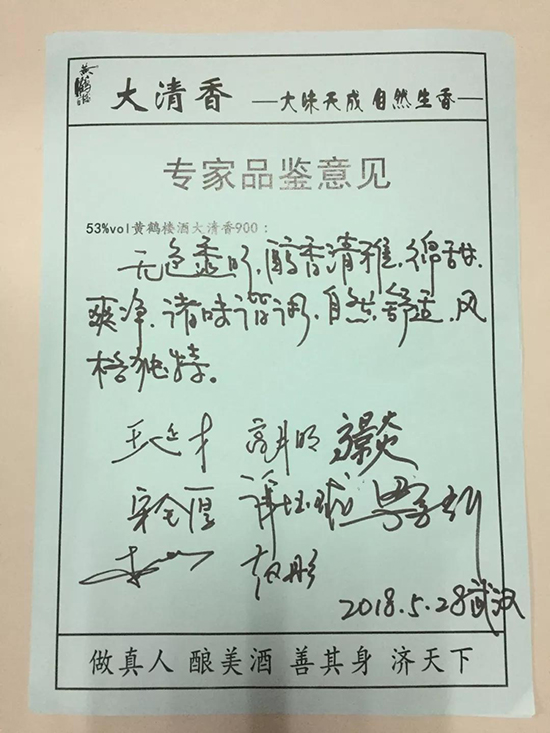 黄鹤楼
大清香 —大味天成 自然生香—
专家品鉴意见
53%vol黄鹤楼酒大清香900：
无色透明，醇香清雅，绵甜
爽净，诸味谐调，自然舒适，风
格独特。
高月明
宋全厚
赵彤
2018.5.28武汉
做真人 酿美酒 善其身 济天下